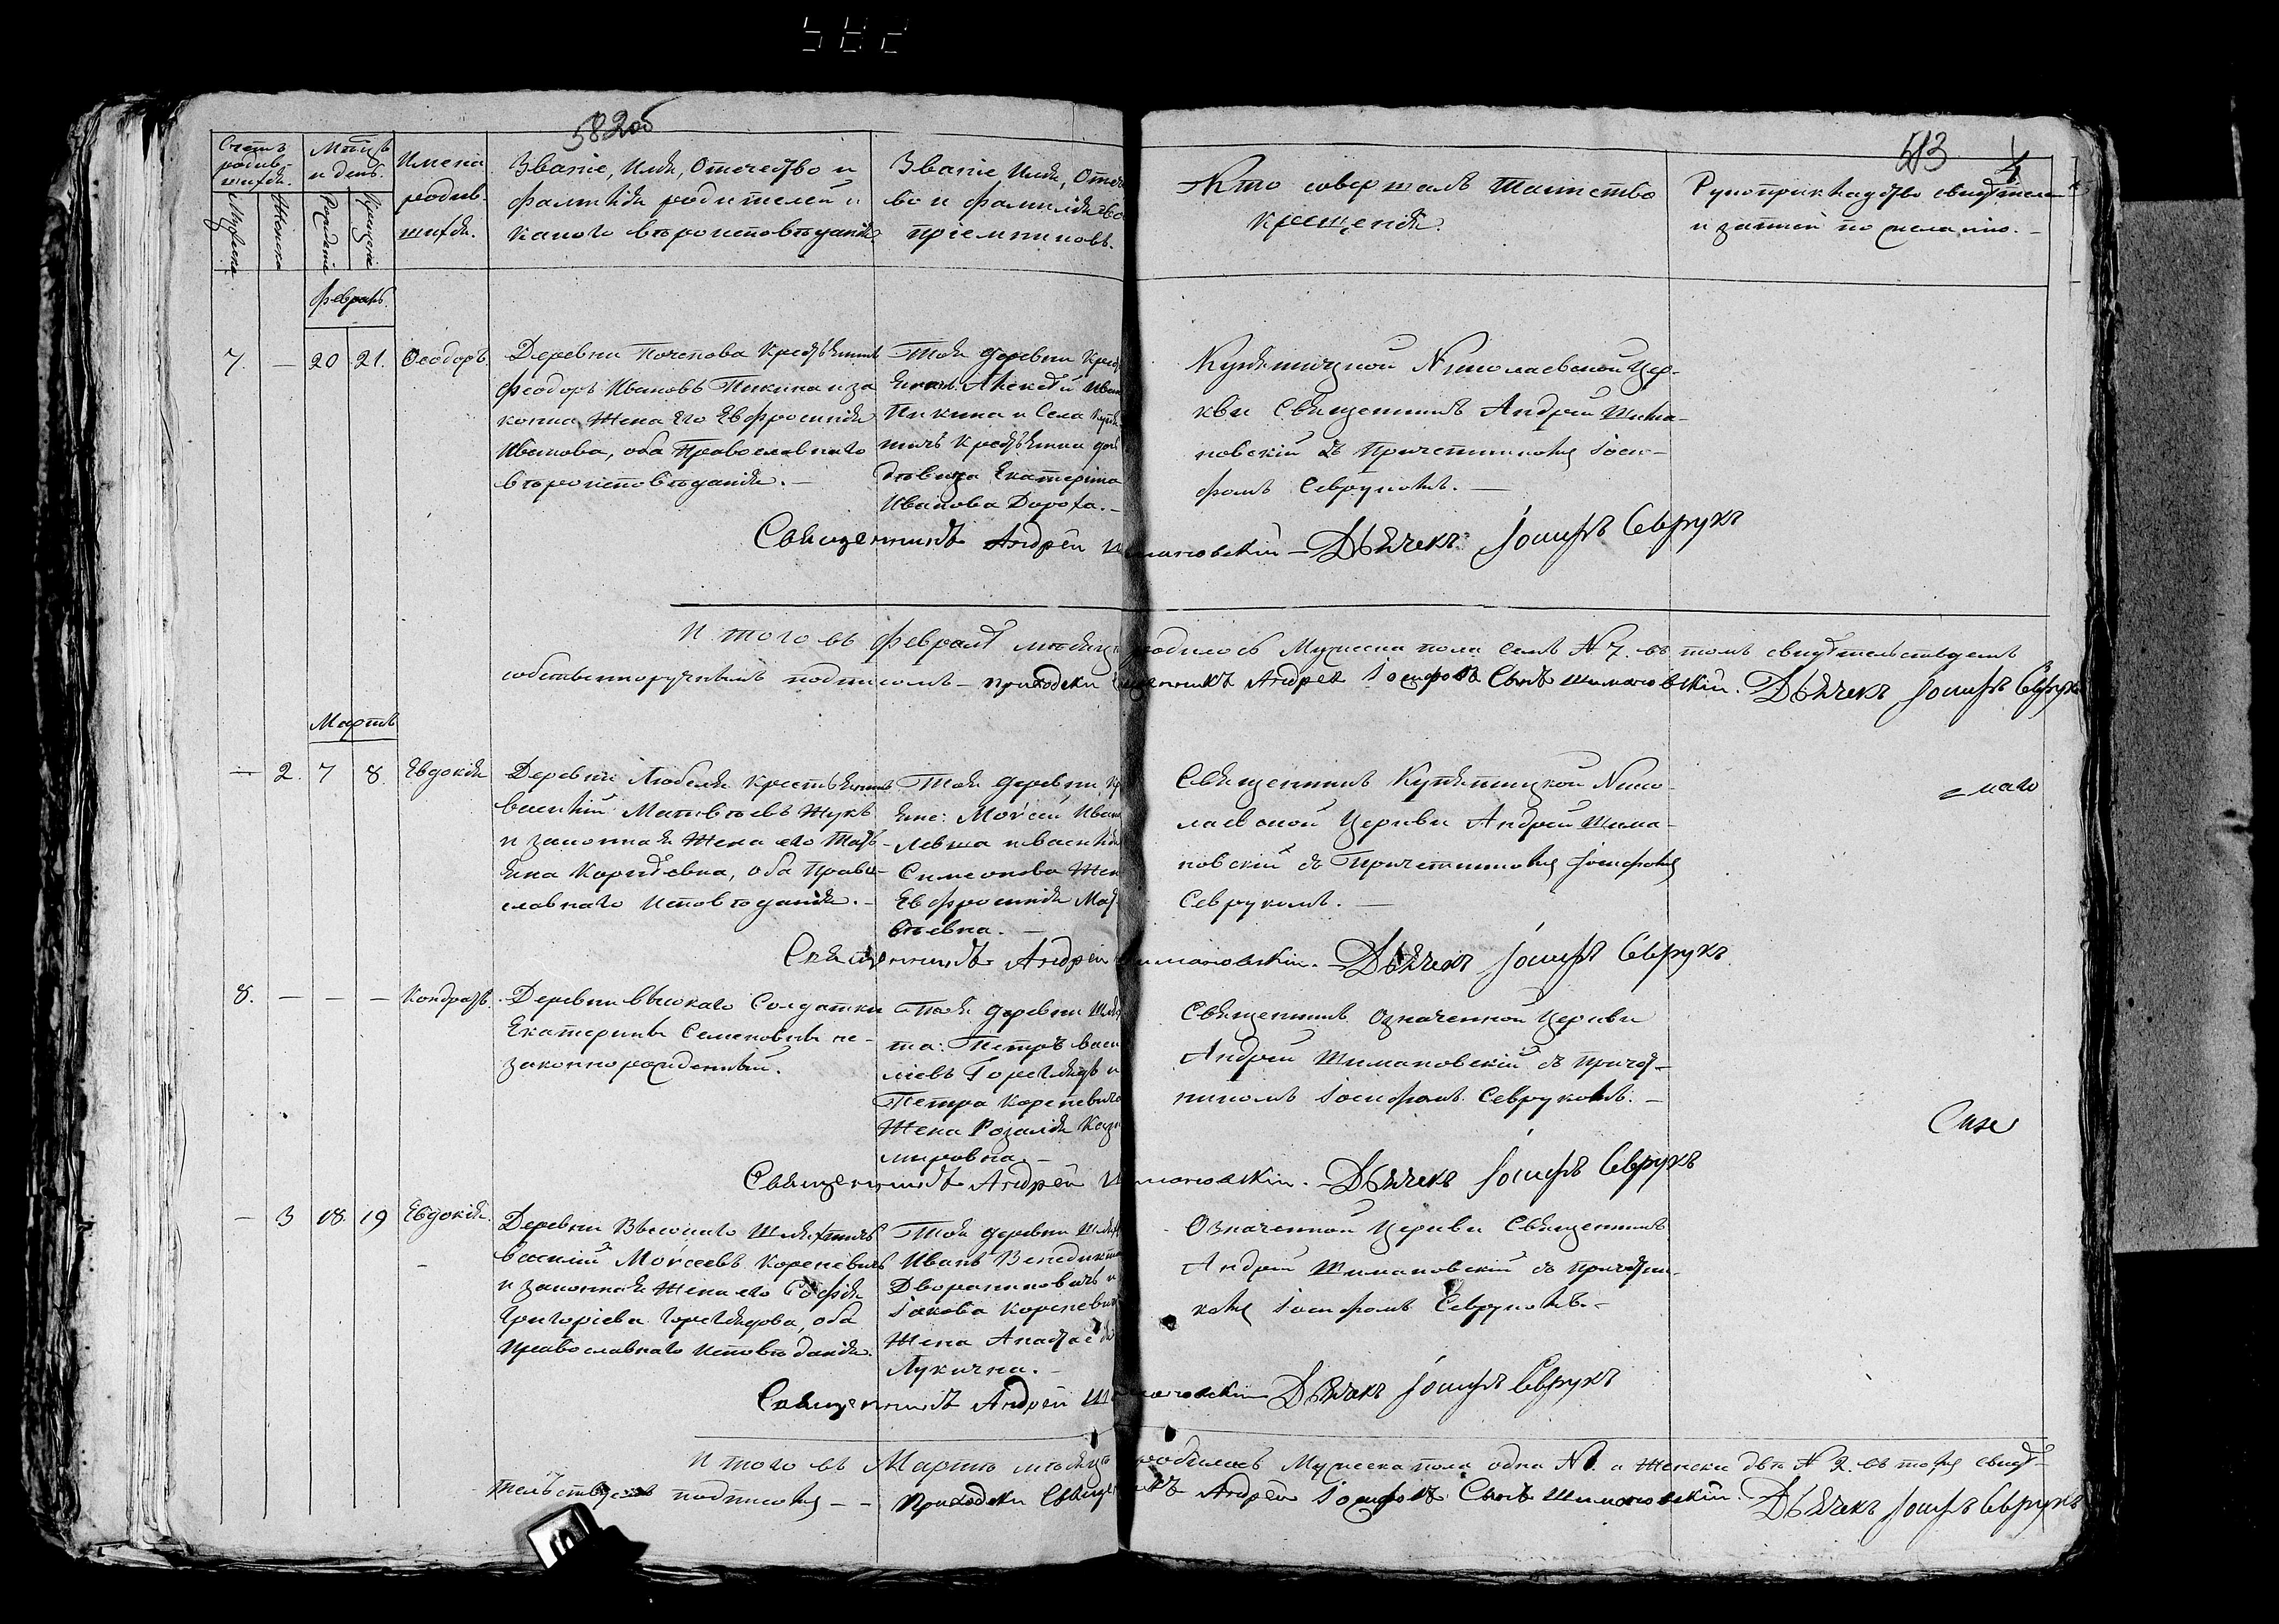 582
582об
583
4
Счетъ родив-шихся.
Мужеска
Женска
М-цъ и день.
Рожденіе
Крещеніе
Имена родив-шихся.
Званіе, Имя, Отечество и
Фамилія родителей и
какого вѣроисповѣданія
Званіе Имя, Отечес
во и фамилія
пріемниковъ.
Кто совершалъ таинство
крещенія.
Рукоприкладство свидѣтелей
и записи по желанію. –
Февраль
7. — 20 21. Ѳеодоръ.
Деревни Почепова Крестьянинъ
Феодоръ Ивановъ Пикина и за
конна Жена Его Евфросинія
Иванова, оба Православнаго
вѣроисповѣданія. –
Тоя деревни Крест
янинъ Алексѣй Иван
Пикина и Села Купя
тичъ Крестьянина доч
дѣвица Екатерина
Иванова Дороха. –
Купятицкой Николаевской Цер-
кви Священникъ Андрей Шима-
новскій съ Причетникомъ Іоси-
фомъ Севрукомъ. —
Священникъ Андрей Шимановскій – Дьячекъ Іосифъ Севрукъ
Итого въ Февралѣ мѣсяцѣ родилось Мужеска пола семь № 7. въ томъ свидѣтельствуемъ
собственноручнымъ подписомъ – приходски священникъ Андрей Іосифовъ Сынъ Шимановскій. Дьячекъ Іосифъ Севрукъ
Мартъ
— 2. 7 8. Евдокія
Деревни Любеля Крестьянинъ
Василій Матвѣевъ Жукъ
и законная Жена его Тать-
яна Корнѣевна, оба Право-
славнаго Исповѣданія. –
Тоя деревни, Кр
яне: Моѵсей Иван
Левша и Василія
Симеонова Жена
Евфросинія Мат
вѣевна. —
Священникъ Купятицкой Нико-
лаевской Церкви Андрей Шима-
новскій съ Причетникомъ Іосифомъ
Севрукомъ. —
Священникъ Андрей Шимановскій. – Дьячекъ Іосифъ Севрукъ
8. — — — Кондратъ.
Деревни Высокаго Солдатки
Екатерины Семеновны не-
законнорожденный.
Тоя деревни Шлях
та: Петръ Васи
ліевъ Горегляд и
Петра Кореневича
Жена Розалія Кази
мировна. –
Священникъ Означенной Церкви
Андрей Шимановскій съ Причет-
никомъ Іосифомъ Севрукомъ. –
Священникъ Андрей Шимановскій. – Дьячекъ Іосифъ Севрукъ
— 3 18. 19 Евдокія.
Деревни Высокаго Шляхтичъ
Василій Моѵсеевъ Кореневичъ
и законная Жена его Софія
Григоріева Гореглядова, оба
Православнаго Исповѣданія.
Тоя деревни Шлях
Иванъ Венедикто
Дворапиновичъ и
Іакова Кореневича
Жена Анастасія
Лукична. –
Означенной Церкви Священникъ
Андрей Шимановскій съ Причетни-
комъ Іосифомъ Севрукомъ. –
Священникъ Андрей Шимановскій Дьячекъ Іосифъ Севрукъ
Итого въ Мартѣ мѣсяцѣ родилось Мужеска пола одна № 1. а Женска два № 2. въ томъ свидѣ-
тельствуемъ подписомъ – – Приходски Священникъ Андрей Іосифовъ Сынъ Шимановскій. Дьячекъ Іосифъ Севрукъ